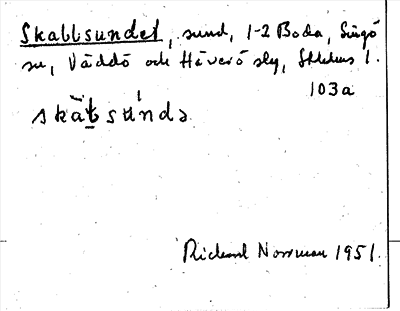 Skabbsundet, sund, 1-2 Boda, Singö
sn, Väddö och Häverö slg, Sthlms l.
103a
skàt̠sùndə
Rickard Norrman 1951.